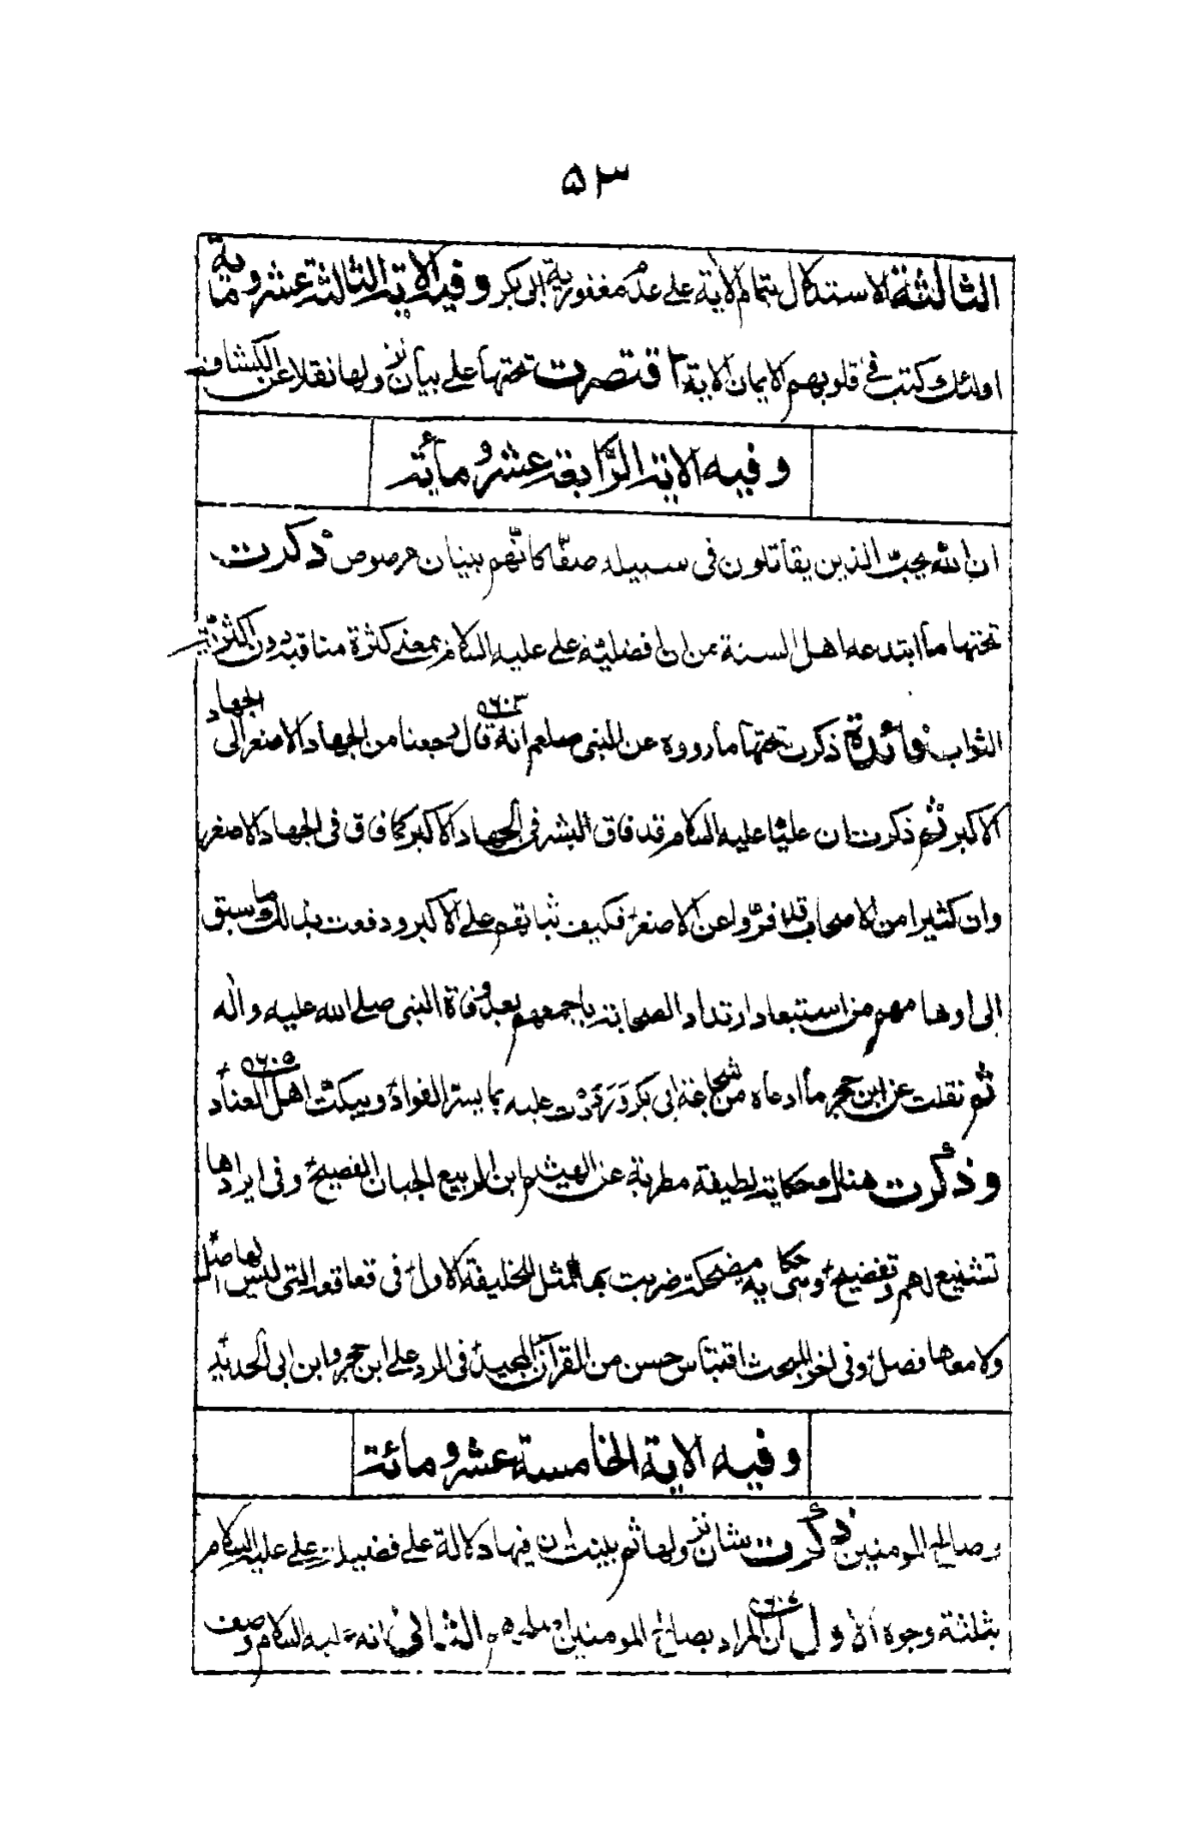 ٥٣
الثالثة الاستدلال بتمام الآية على عدم مغفورية ابى بكر وفيه الاية الثالثة عشر ومائة
اولئك كتب فى قلوبهم الايمان الاية اقتصرت تحتها على بيان نزولها نقلا عن الكشاف
وفيه الاية الرابعة عشر ومأية
ان الله يحب الذين يقاتلون فى سبيله صفّا كانّهم بنيان مرصوص ذكرت
تحتها ما ابتدعه اهل السنة من ان افضلية على عليه السلام بمعنى كثرة مناقبه دون اكثرية
الثواب فائدة ذكرت تحتها ما رووه عن النبى صلعم انه قال رجعنا من الجهاد الاصغر الى الجهاد
٥٦٠٣
الاكبر ثم ذكرت ان عليّا عليه السلام قد فاق البشر فى الجهاد الاكبر كما فاق فى الجهاد الاصغر
وان كثيرا من الاصحاب قد فرّوا عن الاصغر فكيف ثباتهم على الاكبر ودفعت بذلك ما سبق
الى اوهامهم من استبعاد ارتداد الصحابة باجمعهم بعد وفاة النبى صلى الله عليه واله
٥٦٠٥
ثم نقلت عن ابن حجر ما ادعاه من شجاعة ابى بكر ورددت عليه بما يسرّ الفواد ويبكت اهل العناد
وذكرت هنالك حكاية لطيفة مطربة عن الهيثم ابن الربيع الجبان الفصيح وفى ايرادها
تشنيع لهم وتفضيح وحكاية مضحكة ضربت بها المثل للخليفة الاول فى قعاقعه التى ليس لها اصل
ولا معها فصل وفى اخر المبحث اقتباس حسن من القرآن المجيد فى الرد على ابن حجر وابن ابى الحديد
وفيه الاية الخامسة عشر ومائة
وصالح المومنين ذكرت شان نزولها ثم بينت ان فيها دلالة على فضيلة على عليه السلام
بثلثة وجوه الاول ان المراد بصالح المومنين الثانى انه عليه السلام وصف